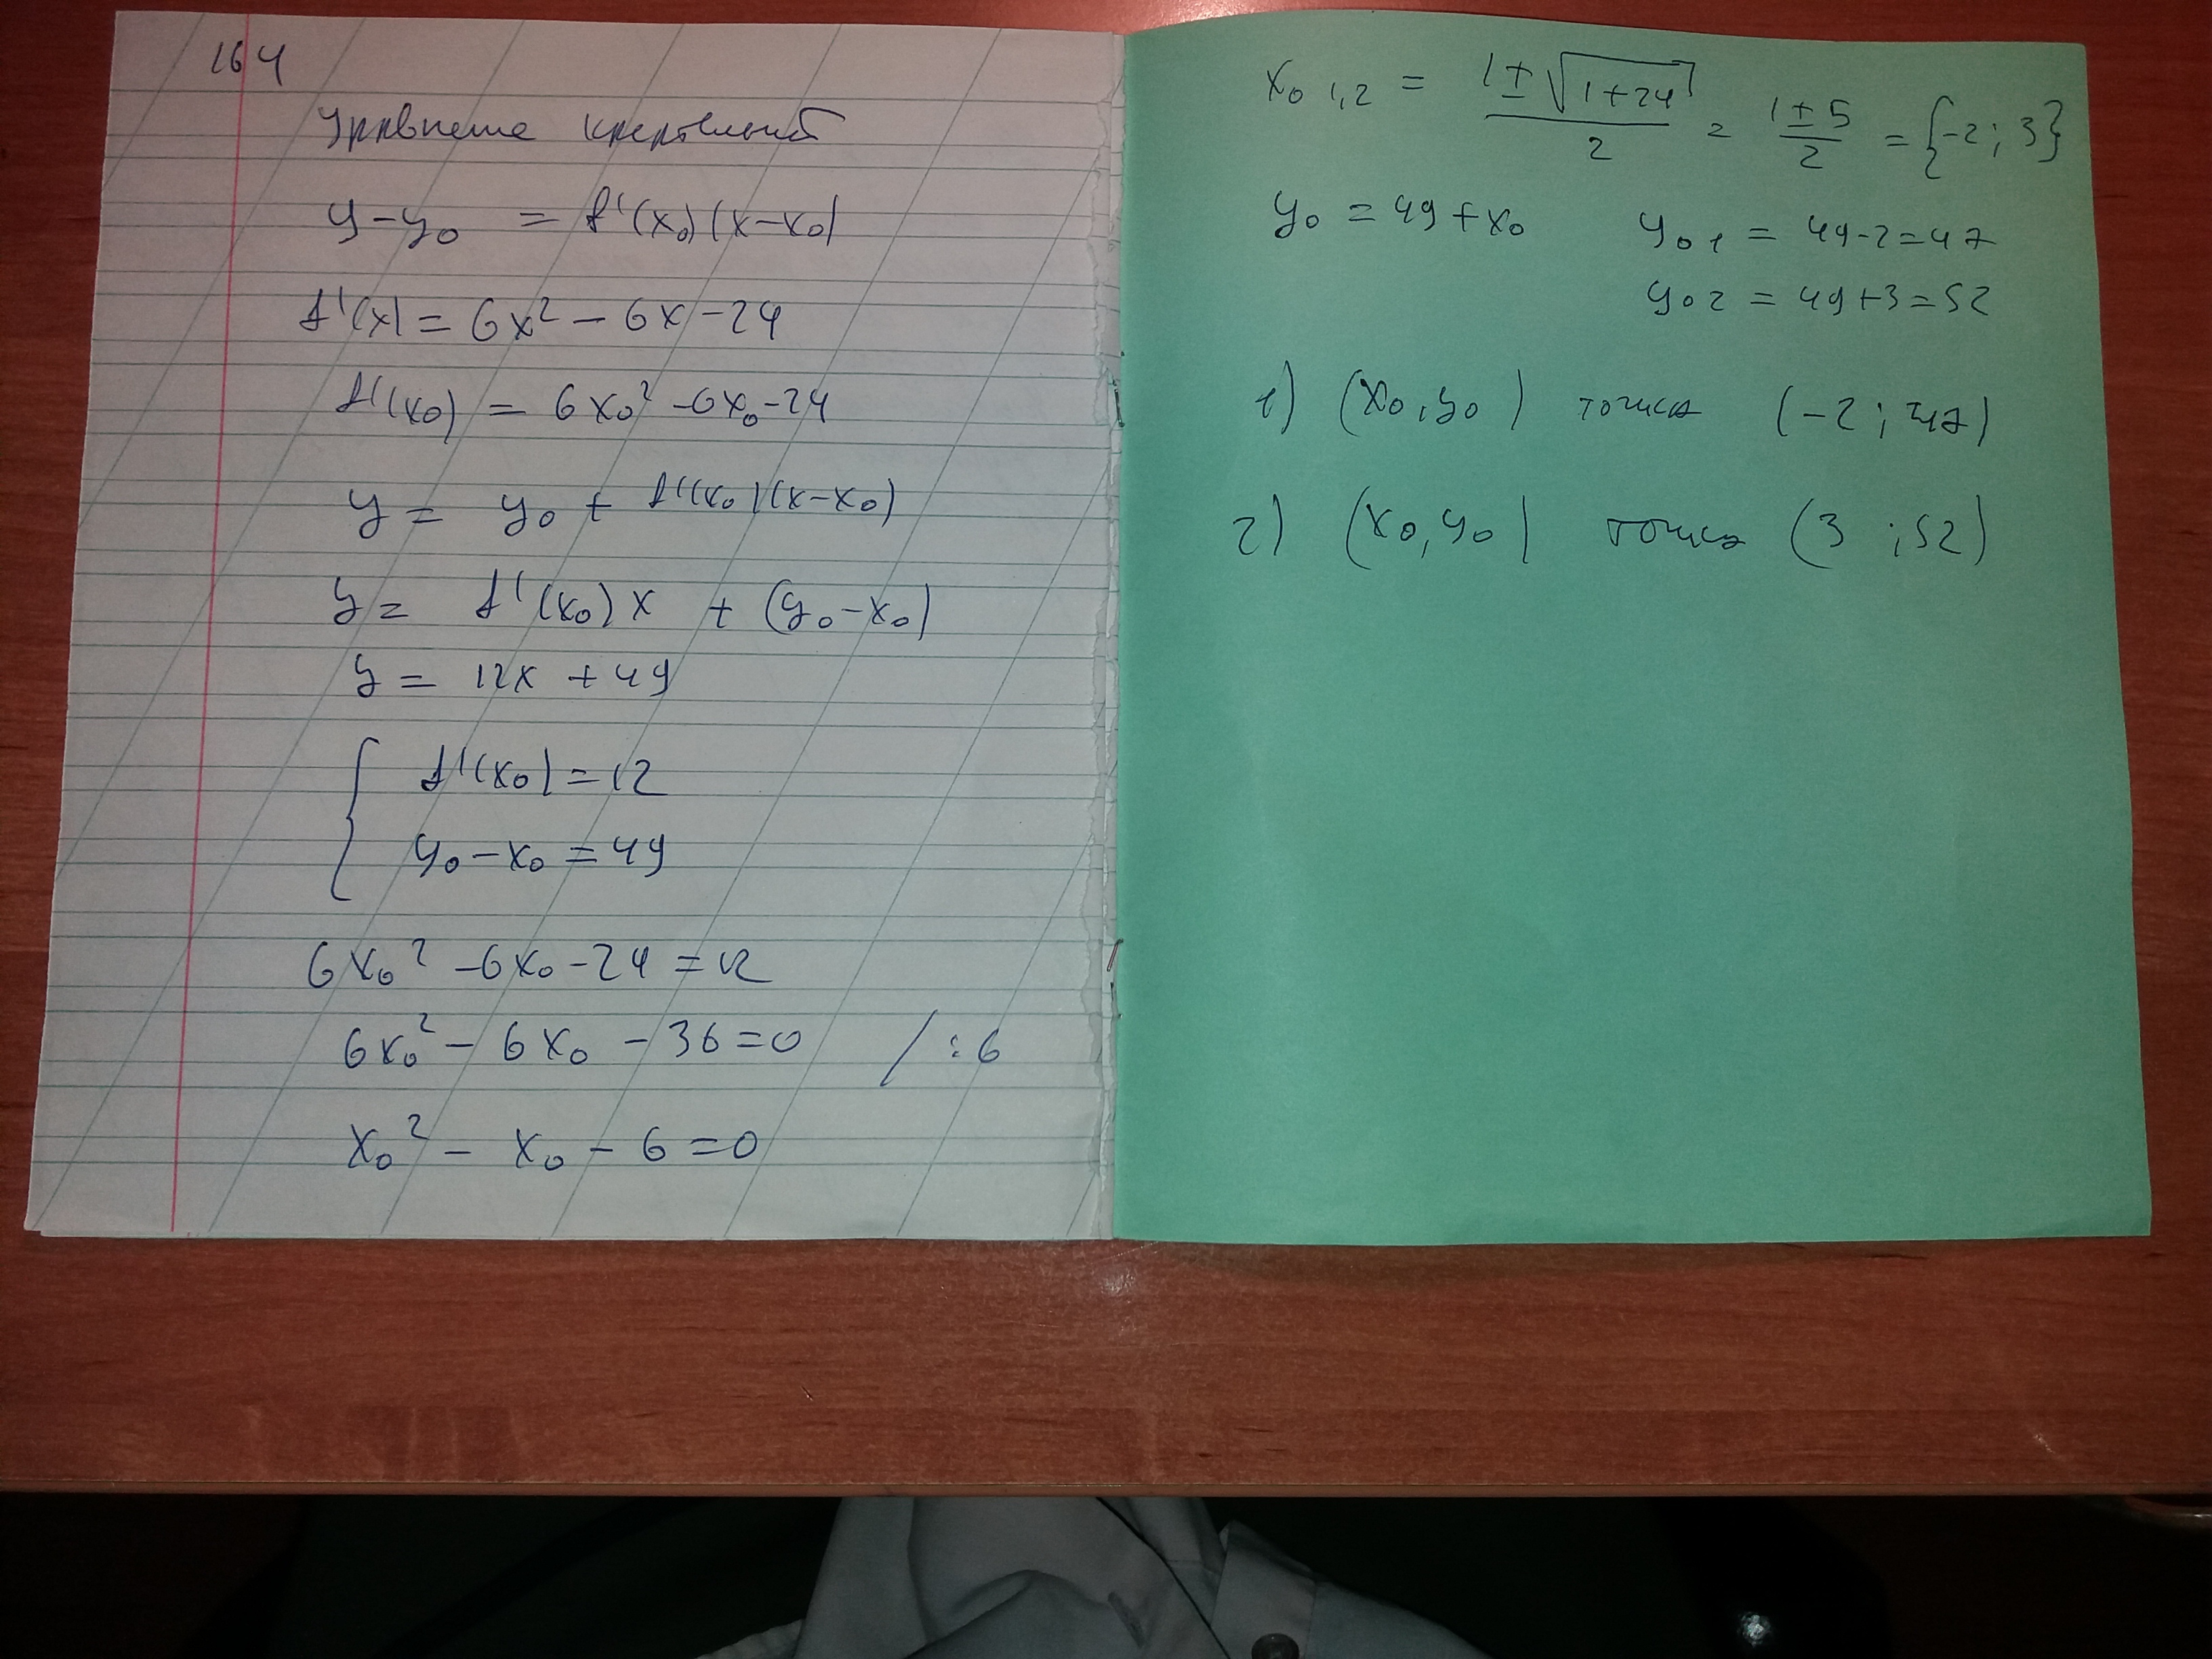 164
Уравнение касательной
y - y₀ = f'(x₀)(x-x₀)
f'(x) = 6x² - 6x - 24
f'(x₀) = 6x₀² - 6x₀ - 24
y = y₀ + f'(x₀)(x-x₀)
y = f'(x₀)x + (y₀-x₀)
y = 12x + 49
{ f'(x₀) = 12
y₀ - x₀ = 49
6x₀² - 6x₀ - 24 = 12
6x₀² - 6x₀ - 36 = 0 / :6
x₀² - x₀ - 6 = 0
x₀ 1,2 = (1 ± √(1+24))/2 = (1 ± 5)/2 = {-2; 3}
y₀ = 49 + x₀ y₀₁ = 49-2=47
y₀₂ = 49+3=52
1) (x₀, y₀) точка (-2; 47)
2) (x₀, y₀) точка (3 ; 52)